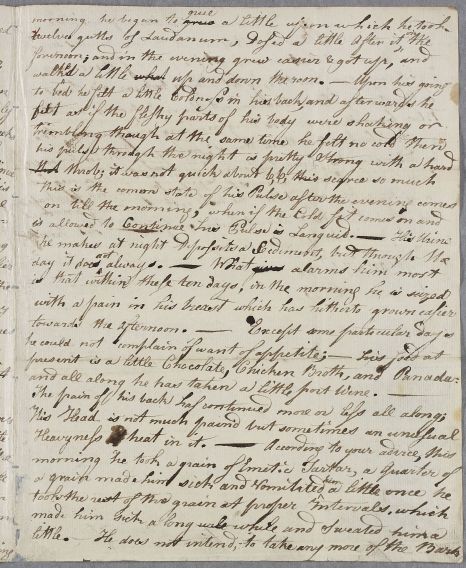 morning he began to give a little upon which he took
twelve gutts of Laudanum, Dosed a little after it, the
forenoon; and in the evening grew easier & got up, and
walk'd a little up and down the room — Upon his going
to bed he felt a little Coldness in his back and afterwards he
felt as if the fleshy parts of his body were shaking or
trembling though at the same time he felt no cold there
his pulse through the night is pretty strong with a hard
throb; it was not quick about 60, this is so much
this is the comon state of his Pulse after the evening comes
on till the morning; when if the Cold fit comes on and
is allowed to Continue his Pulse is Languid. — His Urine
he makes at night Deposites a Sediment, but through the
day it does not always. — What alarms him most
is that within these ten days, in the morning he is seized
with a pain in his breast which has hitherto grown easier
towards the afternoon. — Except some particular days
he could not complain of want of appetite; — his food at
present is a little Chocolate, Chicken Broth, and Panada:
and all along he has taken a little port Wine. —
The pain of his back has continued more or less all along;
His Head is not much pained but sometimes an unusual
Heavyness & heat in it. — According to your advice, this
morning he took a grain of Emetic Tartar, a quarter of
a grain made him sick and vomited him a little once he
took the rest of the grain at proper Intervals, which
made him sick a long while and sweated him a
little. — He does not intend, to take any more of the Bark